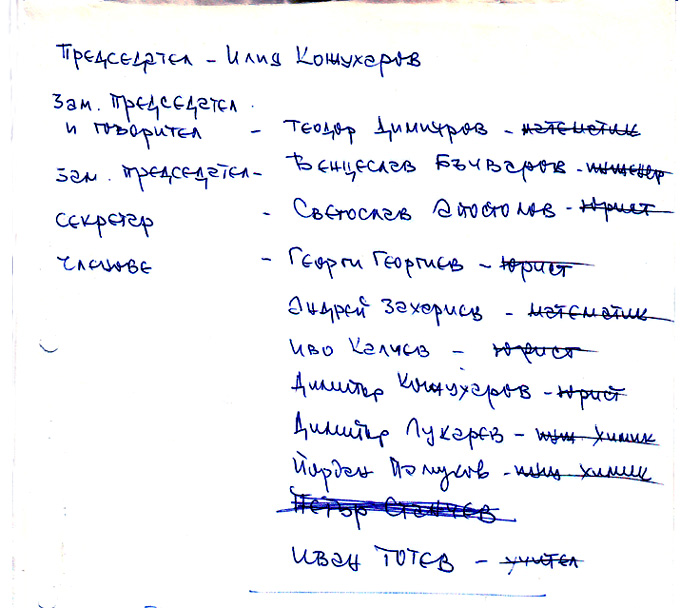 Председател - Илия Кожухаров
Зам. председател
и говорител - Теодор Димитров - математик
Зам. председател - Венцеслав Бъчваров - инженер
Секретар - Светослав Апостолов - юрист
Членове - Георги Георгиев - юрист
Андрей Захариев - математик
Иво Калчев - юрист
Димитър Кожухаров - юрист
Димитър Лукарев - инж химик
Йордан Памуков - инж химик
Петър Станчев
Иван Тотев - учител